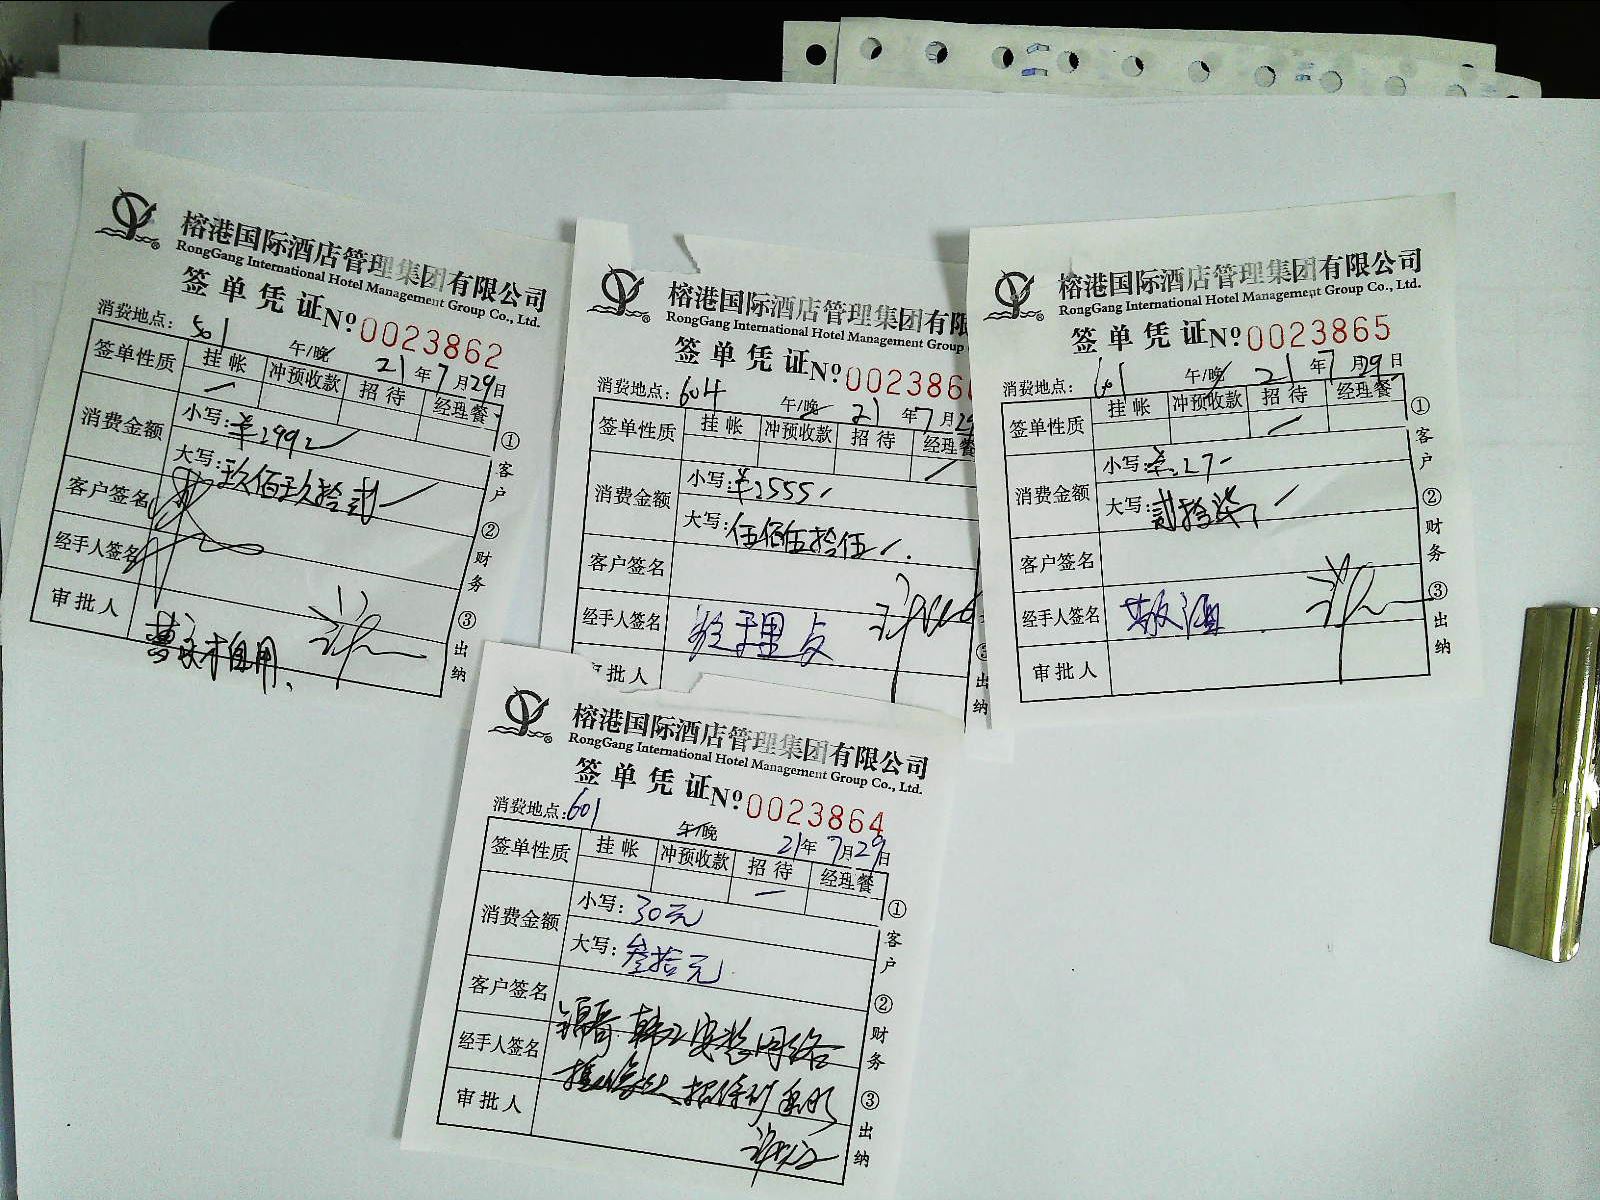 榕港国际酒店管理集团有限公司
RongGang International Hotel Management Group Co., Ltd.
签单凭证 № 0023862
消费地点: 501 午/晚 21年7月29日
签单性质 挂帐 冲预收款 招待 经理餐
消费金额 小写: ¥992
大写: 玖佰玖拾贰
客户签名
经手人签名
审批人
①客户 ②财务 ③出纳
榕港国际酒店管理集团有限
RongGang International Hotel Management Group
签单凭证 № 002386
消费地点: 604 午/晚 21年7月29
签单性质 挂帐 冲预收款 招待 经理餐
消费金额 小写: ¥555
大写: 伍佰伍拾伍
客户签名
经手人签名
审批人
出纳
榕港国际酒店管理集团有限公司
RongGang International Hotel Management Group Co., Ltd.
签单凭证 № 0023865
消费地点: 601 午/晚 21年7月29日
签单性质 挂帐 冲预收款 招待 经理餐
消费金额 小写: ¥27
大写: 贰拾柒
客户签名
经手人签名
审批人
①客户 ②财务 ③出纳
榕港国际酒店管理集团有限公司
RongGang International Hotel Management Group Co., Ltd.
签单凭证 № 0023864
消费地点: 601 午/晚 21年7月29日
签单性质 挂帐 冲预收款 招待 经理餐
消费金额 小写: 30元
大写: 叁拾元
客户签名
经手人签名
审批人
①客户 ②财务 ③出纳